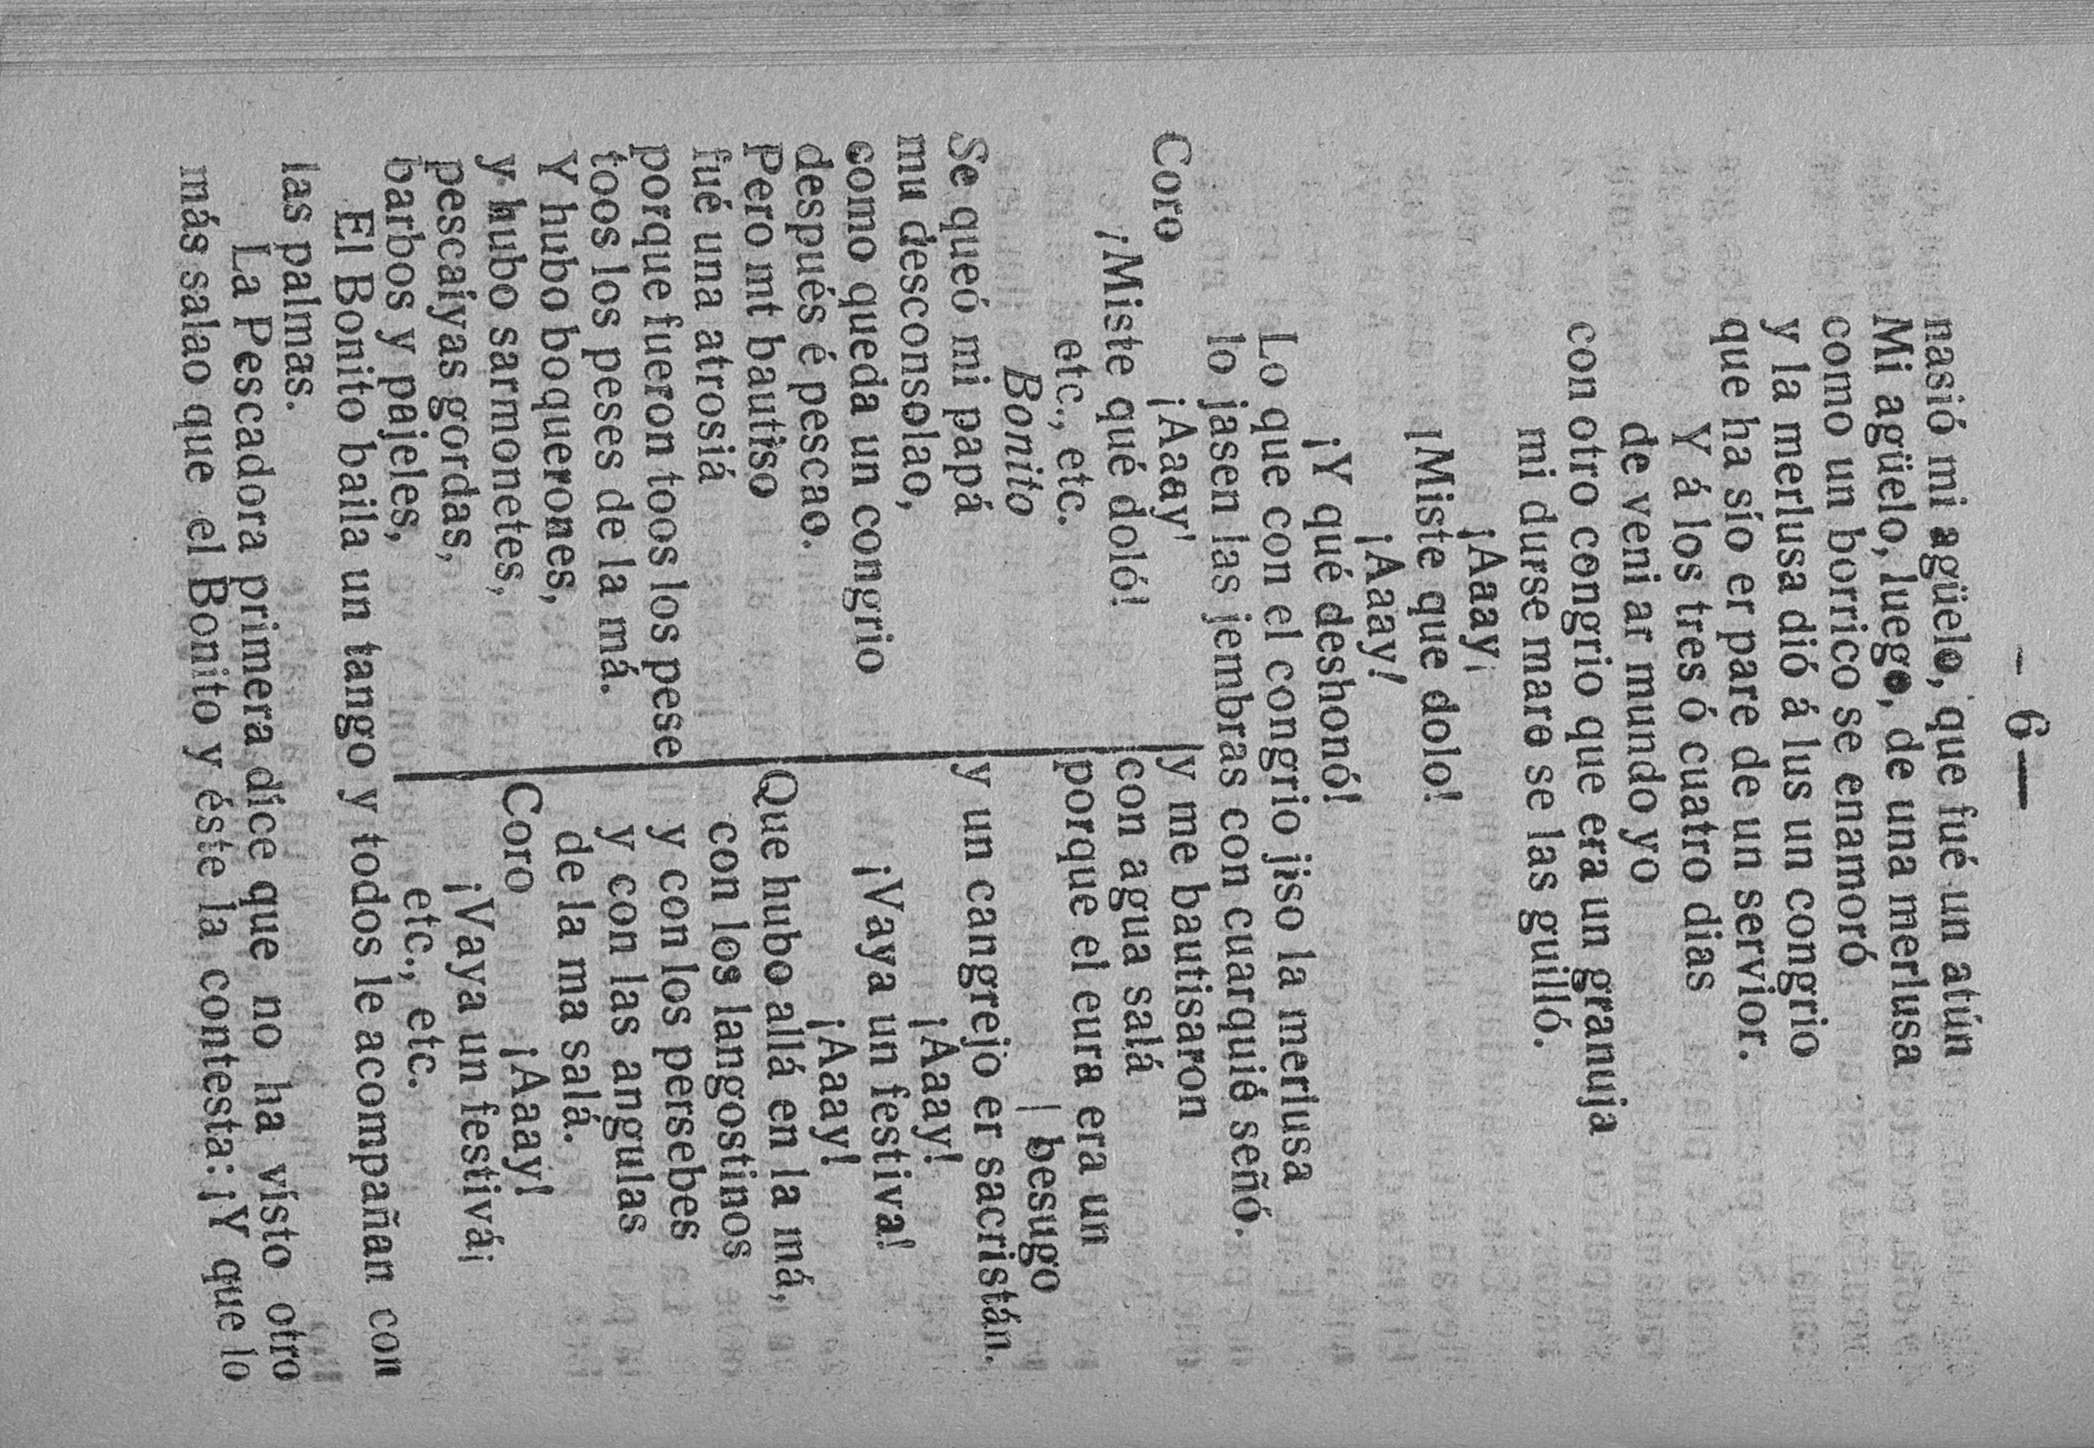 – 6 —
nasió mi agüelo, que fué un atún
Mi agüelo, luego, de una merlusa
como un borrico se enamoró
y la merlusa dió á lus un congrio
que ha sío er pare de un servior.
Y á los tres ó cuatro dias
de veni ar mundo yo
con otro congrio que era un granuja
mi durse mare se las guilló.
¡Aaay¡
¡Miste que dolo!
¡Aaay!
¡Y qué deshonó!
Lo que con el congrio jiso la merlusa
lo jasen las jembras con cuarquié señó.
Coro
¡Aaay!
¡Miste qué doló!
etc., etc.
Bonito
Se queó mi papá
mu desconsolao,
como queda un congrio
después é pescao.
Pero mt bautiso
fué una atrosiá
porque fueron toos los pese
toos los peses de la má.
Y hubo boquerones,
y hubo sarmonetes,
pescaiyas gordas,
barbos y pajeles,
y me bautisaron
con agua salá
porque el eura era un
| besugo
y un cangrejo er sacristán.
¡Aaay!
¡Vaya un festiva!
¡Aaay!
Que hubo allá en la má,
con los langostinos
y con los persebes
y con las angulas
de la ma salá.
Coro
¡Aaay!
¡Vaya un festivá¡
etc., etc.
El Bonito baila un tango y todos le acompañan con
las palmas.
La Pescadora primera dice que no ha visto otro
más salao que el Bonito y éste la contesta: ¡Y que lo